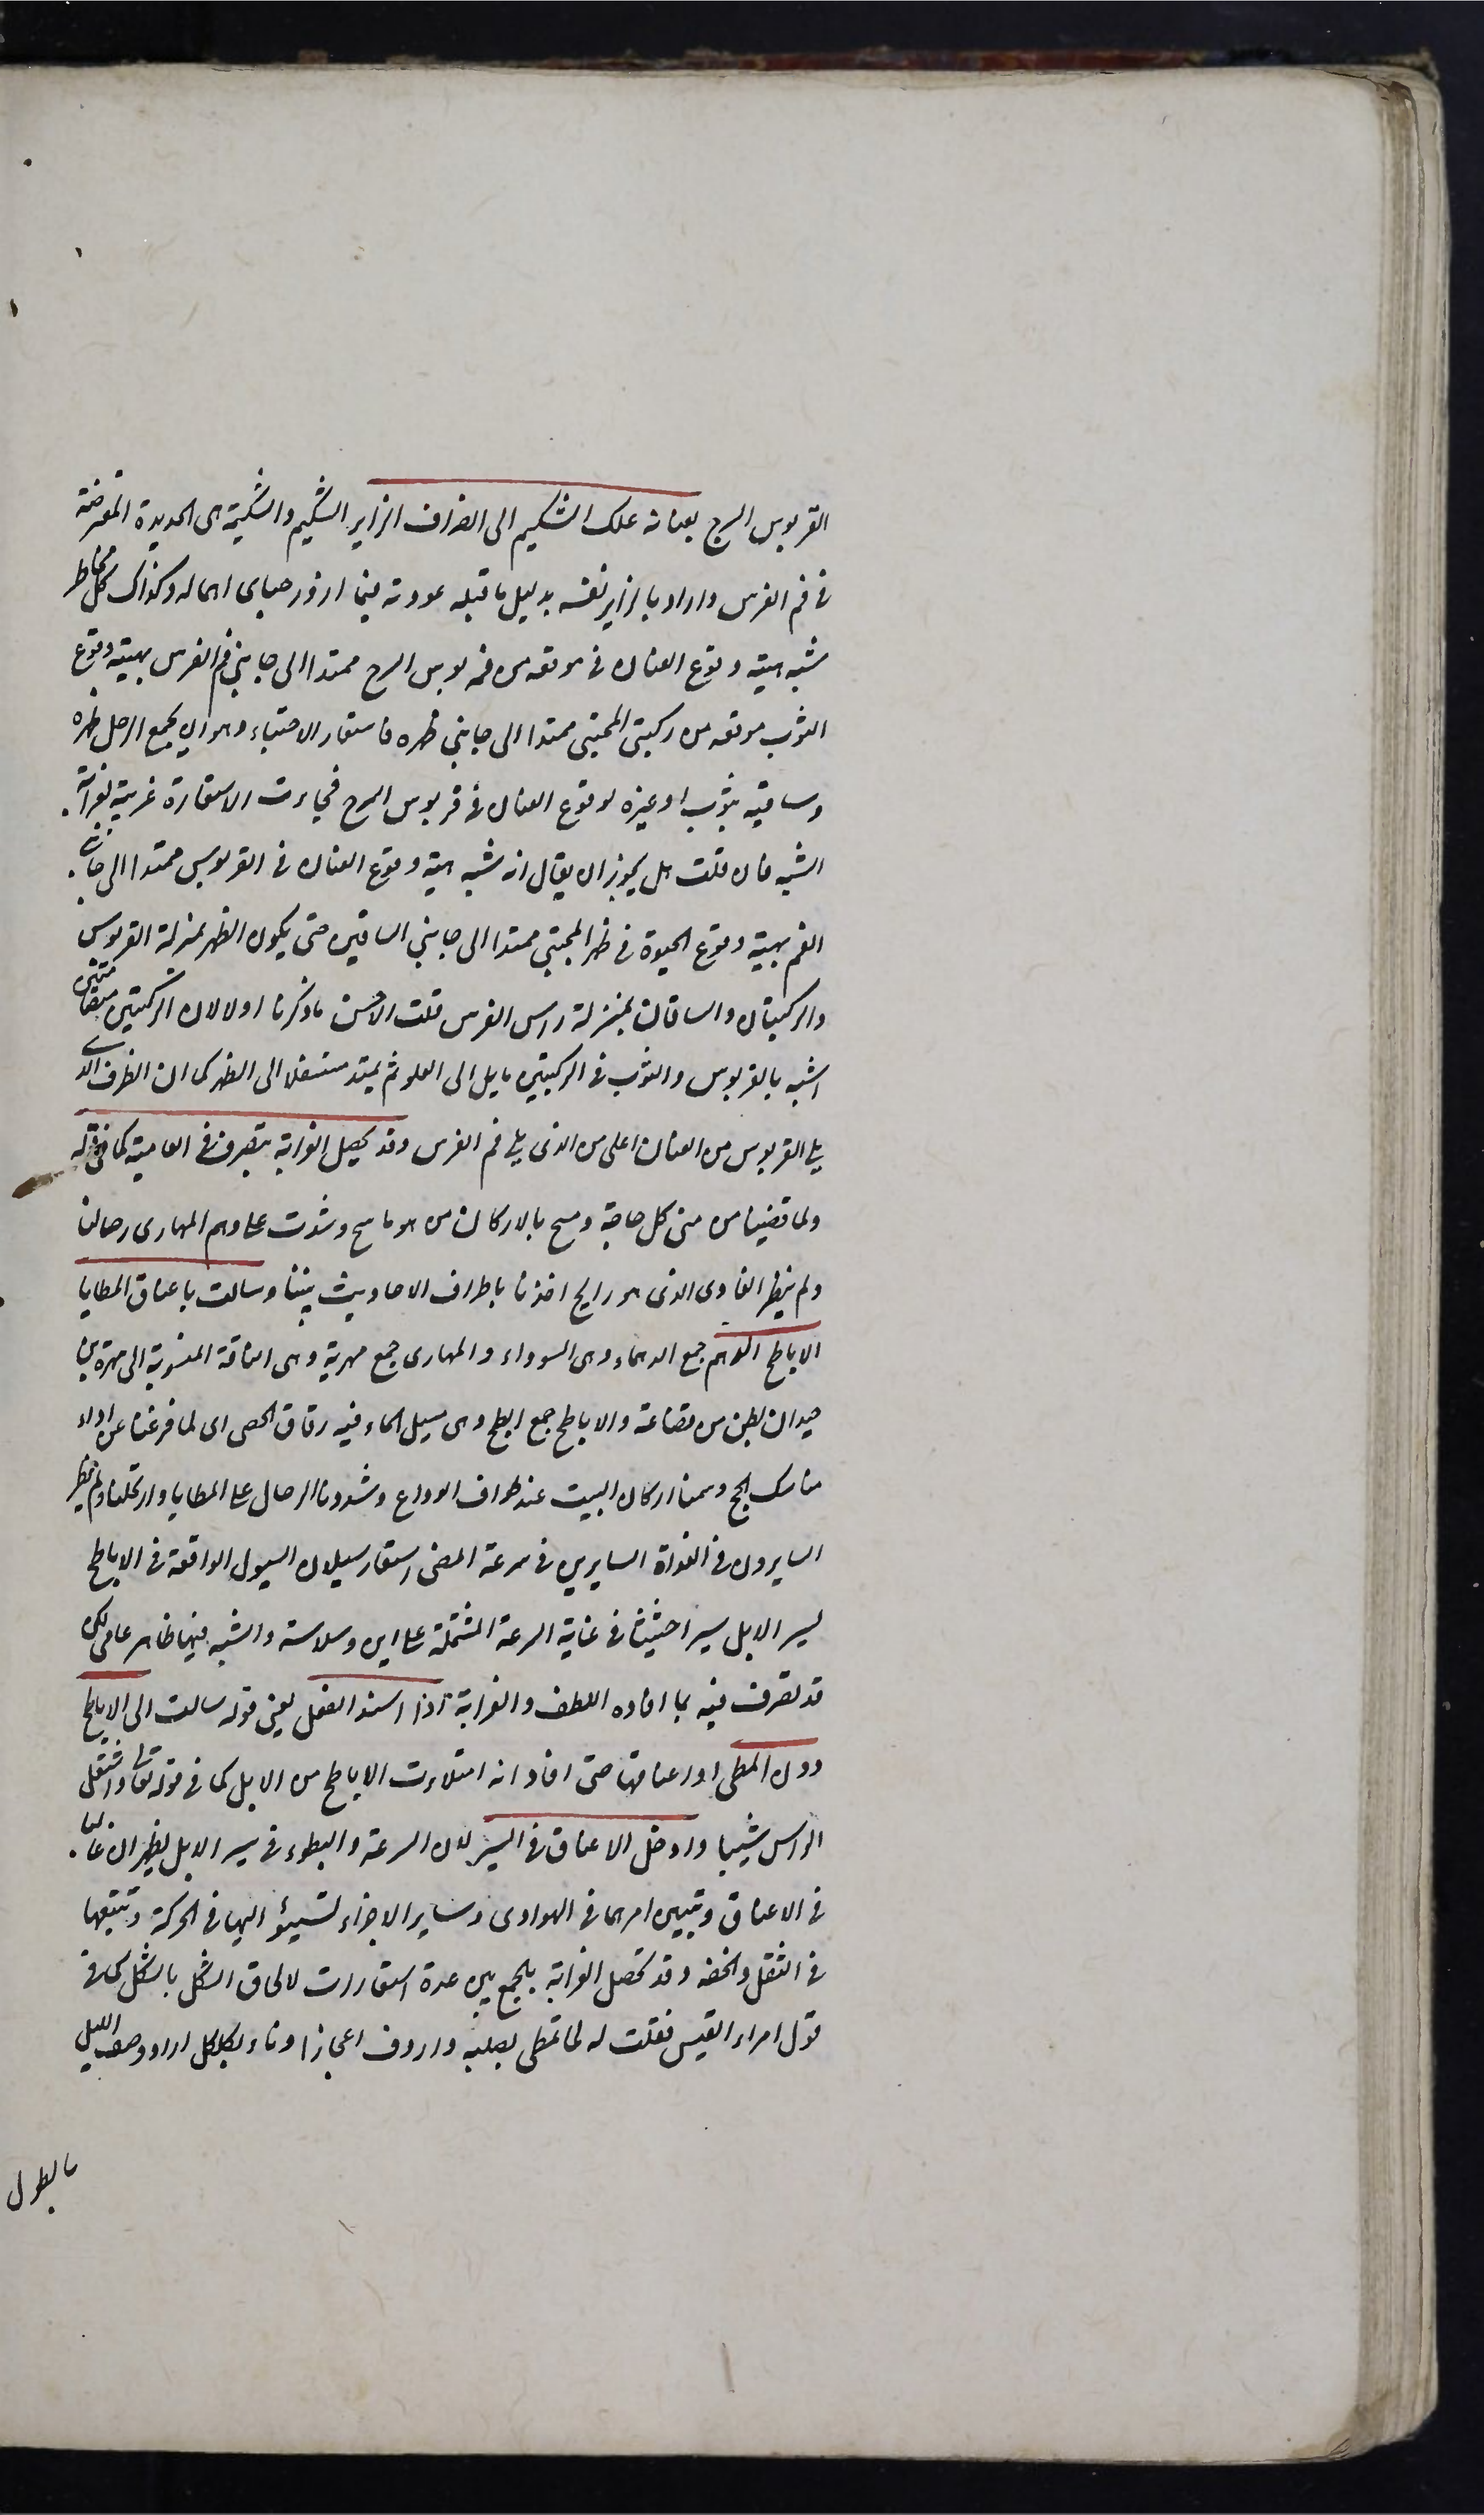 القربوس السرج بعنانه علك الشكيم الى انصراف الزاير الشكيم والشكيمة هى الحديدة المعترضة
فى فم الفرس واراد بالزاير نفسه بدليل ما قبله عودته فيما ازور حبايبى اهماله وكذاك كل مخاطر
شبه هيئة وقوع العنان فى موقعه من قربوس السرج ممتدا الى جانبى فم الفرس بهيئة وقوع
الثوب موقعه من ركبتى المحتبى ممتدا الى جانبى ظهره فاستعار الاحتباء وهو ان يجمع الرجل ظهره
وساقيه بثوب او غيره لوقوع العنان فى قربوس السرج فجاءت الاستعارة غريبة لغرابة
الشبه فان قلت هل يجوز ان يقال انه شبه هيئة وقوع العنان فى القربوس ممتدا الى جانبى
الفم بهيئة وقوع الحبوة فى ظهر المحتبى ممتدا الى جانبى الساقين حتى يكون الظهر بمنزلة القربوس
والركبتان والساقان بمنزلة راس الفرس قلت الاحسن ما ذكرنا اولا لان الركبتين
اشبه بالقربوس والثوب فى الركبتين مايل الى العلو ثم يمتد متسفلا الى الظهر كما ان الطرف الذى
يلى القربوس من العنان اعلى من الذى يلى فم الفرس وقد يحصل الغرابة بتصرف فى العامية كما فى قوله
ولما قضينا من منى كل حاجة ومسح بالاركان من هو ماسح وشدت على دهم المهارى رحالنا
ولم ينظر الغادى الذى هو رايح اخذنا باطراف الاحاديث بيننا وسالت باعناق المطايا
الاباطح الدهم جمع الدهماء وهى السوداء والمهارى جمع مهرية وهى الناقة المنسوبة الى مهرة بن
حيدان بطن من قضاعة والاباطح جمع ابطح وهى مسيل الماء فيه دقاق الحصى اى لما فرغنا عن اداء
مناسك الحج ومسحنا اركان البيت عند طواف الوداع وشددنا الرحال على المطايا وارتحلنا ولم ينظر
السايرون فى الغداة السايرين فى سرعة المضى استعار سيلان السيول الواقعة فى الاباطح
لسير الابل سيرا حثيثا فى غاية السرعة المشتملة على لين وسلاسة والشبه فيها ظاهر عامى لكن
قد تصرف فيه بما افاده اللطف والغرابة اذا اسند الفعل يعنى قوله سالت الى الاباطح
دون المطى او اعناقها حتى افاد انه امتلاءت الاباطح من الابل كما فى قوله تعالى واشتعل
الراس شيبا وادخل الاعناق فى السير لان السرعة والبطوء فى سير الابل يظهران غالبا
فى الاعناق وتبين امرهما فى الهوادى وساير الاجزاء تستند اليها فى الحركة وتتبعها
فى الثقل والخفة وقد تحصل الغرابة بالجمع بين عدة استعارات لالحاق الشكل بالشكل كما فى
قول امراء القيس فقلت له لما تمطى بصلبه واردف اعجازا وناء بكلكل اراد وصف الليل
بالطول